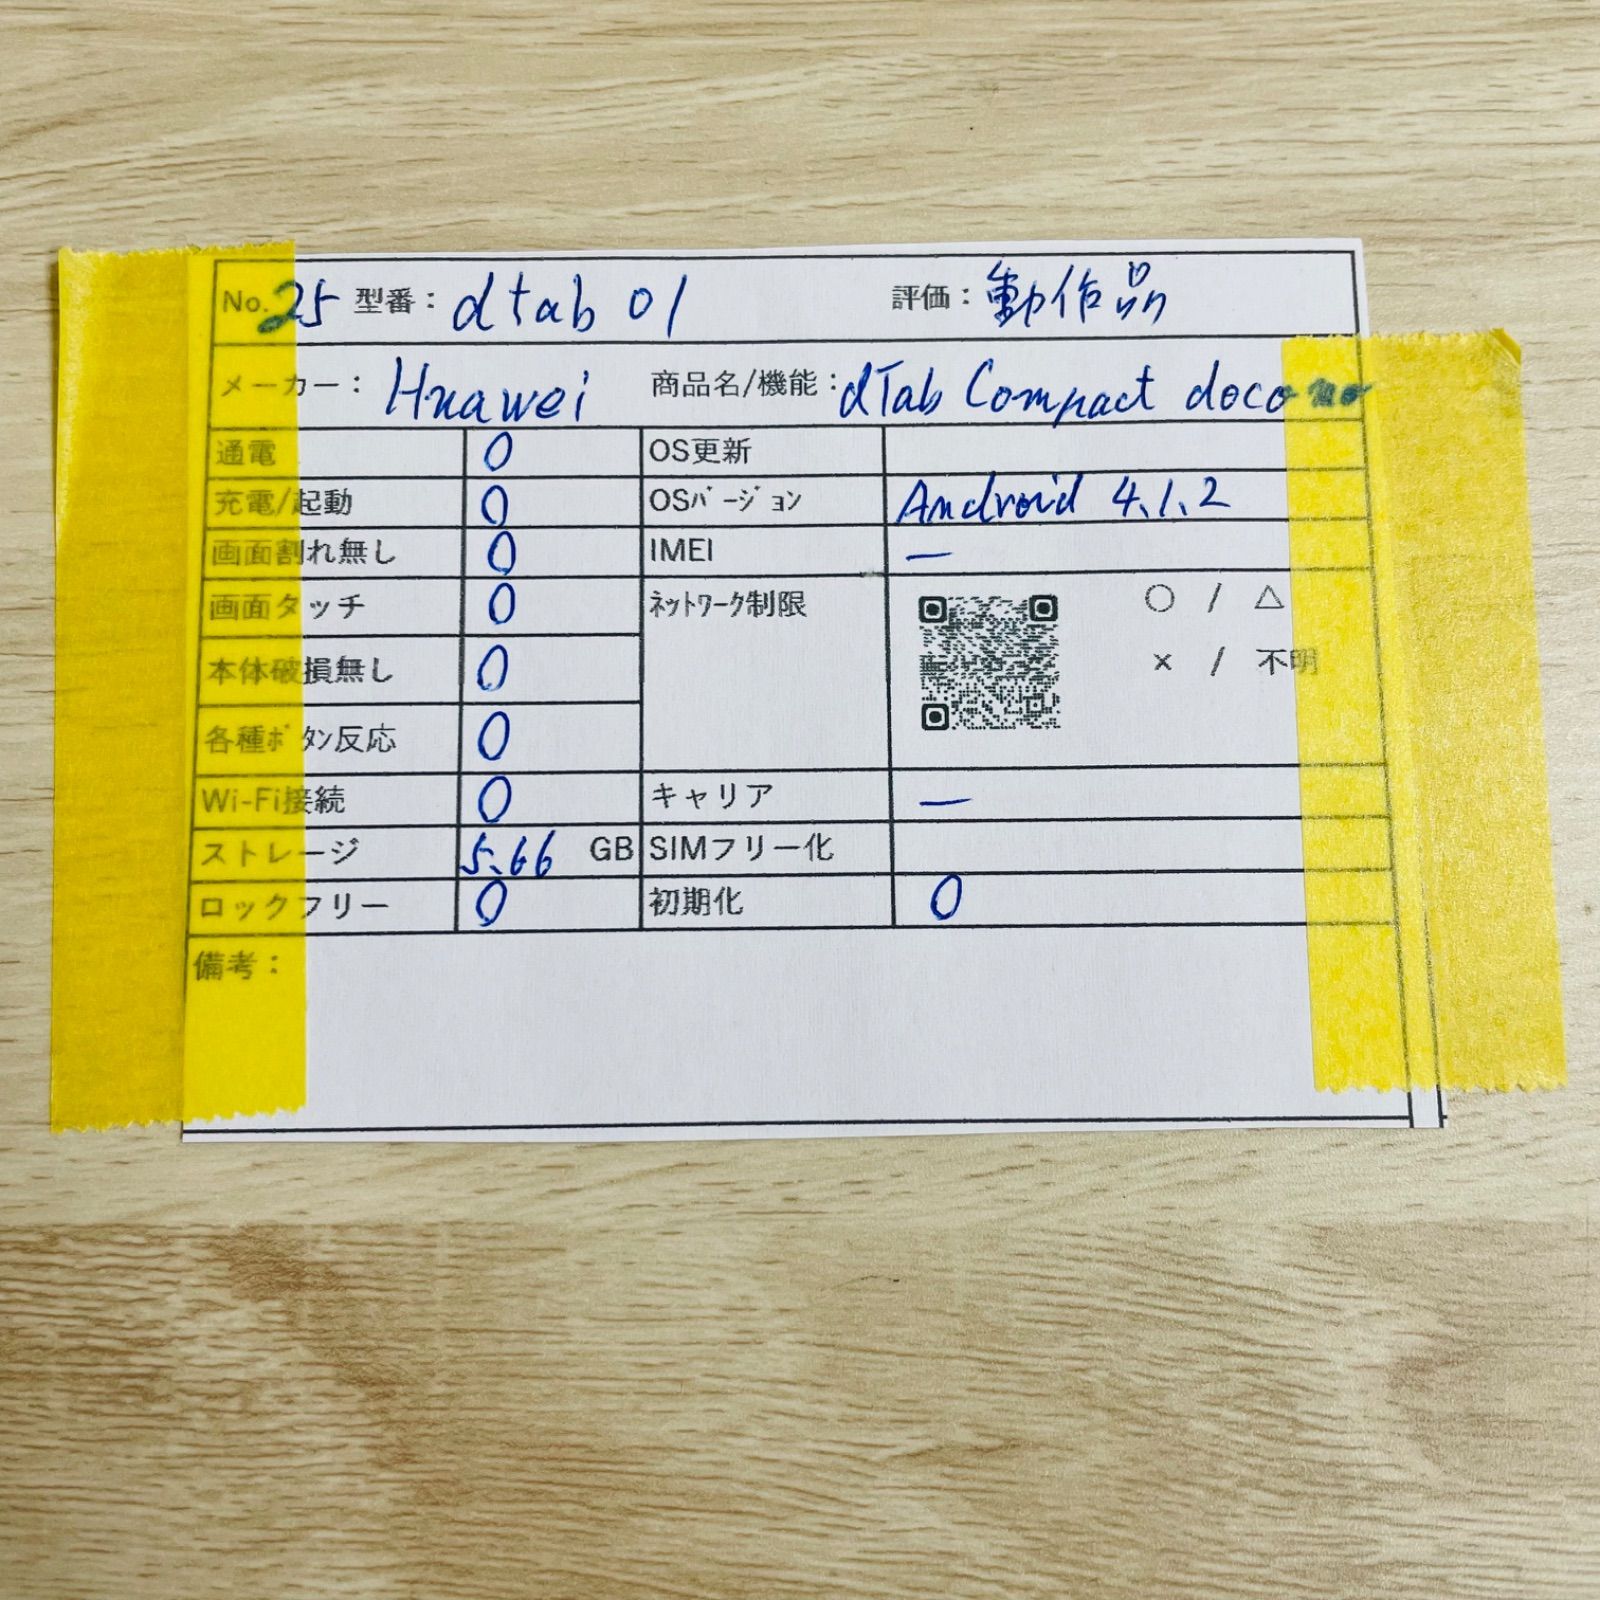 No. 25 型番： dtab 01 評価： 動作品
メーカー： Huawei 商品名/機能： dTab Compact docomo
通電 O OS更新
充電/起動 O OSバージョン Android 4.1.2
画面割れ無し O IMEI —
画面タッチ O ネットワーク制限 ○ / △
本体破損無し O × / 不明
各種ボタン反応 O
Wi-Fi接続 O キャリア —
ストレージ 5.66 GB SIMフリー化
ロックフリー O 初期化 O
備考：